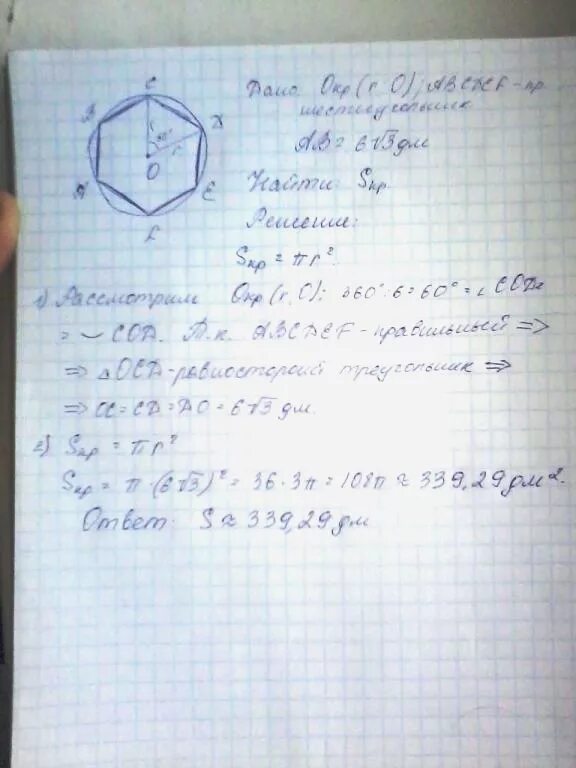 C
B
D
60°
r
O
A
E
F
Дано: Окр(r; O); ABCDEF - пр.
шестиугольник
AB = 6√3 дм
Найти: Sкр
Решение:
Sкр = πr².
1) Рассмотрим Окр(r, O): 360° : 6 = 60° = ∠COD =
= ◡ COD. Т.к. ABCDEF - правильный =>
=> △OCD - равносторонний треугольник =>
=> OC = CD = DO = 6√3 дм.
2) Sкр = πr²
Sкр = π·(6√3)² = 36·3π = 108π ≈ 339,29 дм².
Ответ: S ≈ 339,29 дм